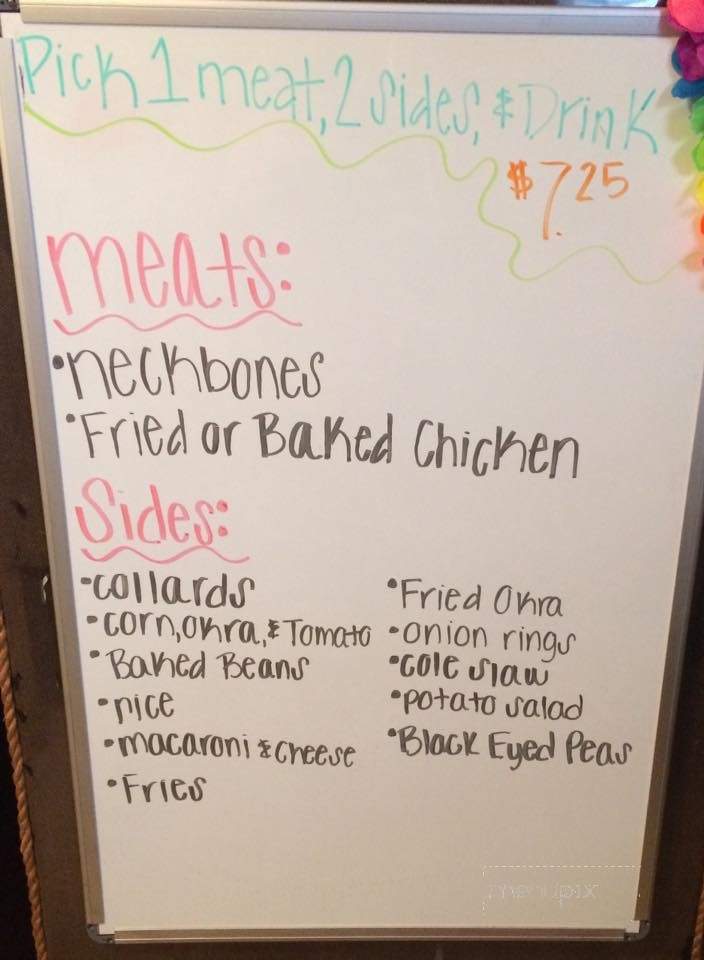 Pick 1 meat, 2 sides, & Drink
$7.25
meats:
•neckbones
•Fried or Baked Chicken
Sides:
•collards
•corn, okra, & Tomato
•Baked Beans
•rice
•macaroni & cheese
•Fries
•Fried Okra
•onion rings
•cole slaw
•potato salad
•Black Eyed Peas